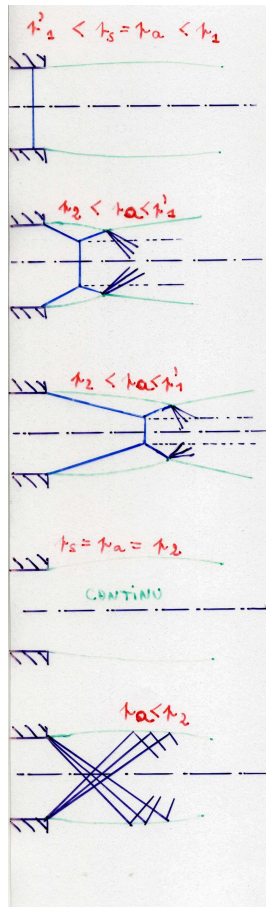 p'₁ < pₛ = pₐ < p₁
p₂ < pₐ < p'₁
p₂ < pₐ < p'₁
pₛ = pₐ = p₂
CONTINU
pₐ < p₂